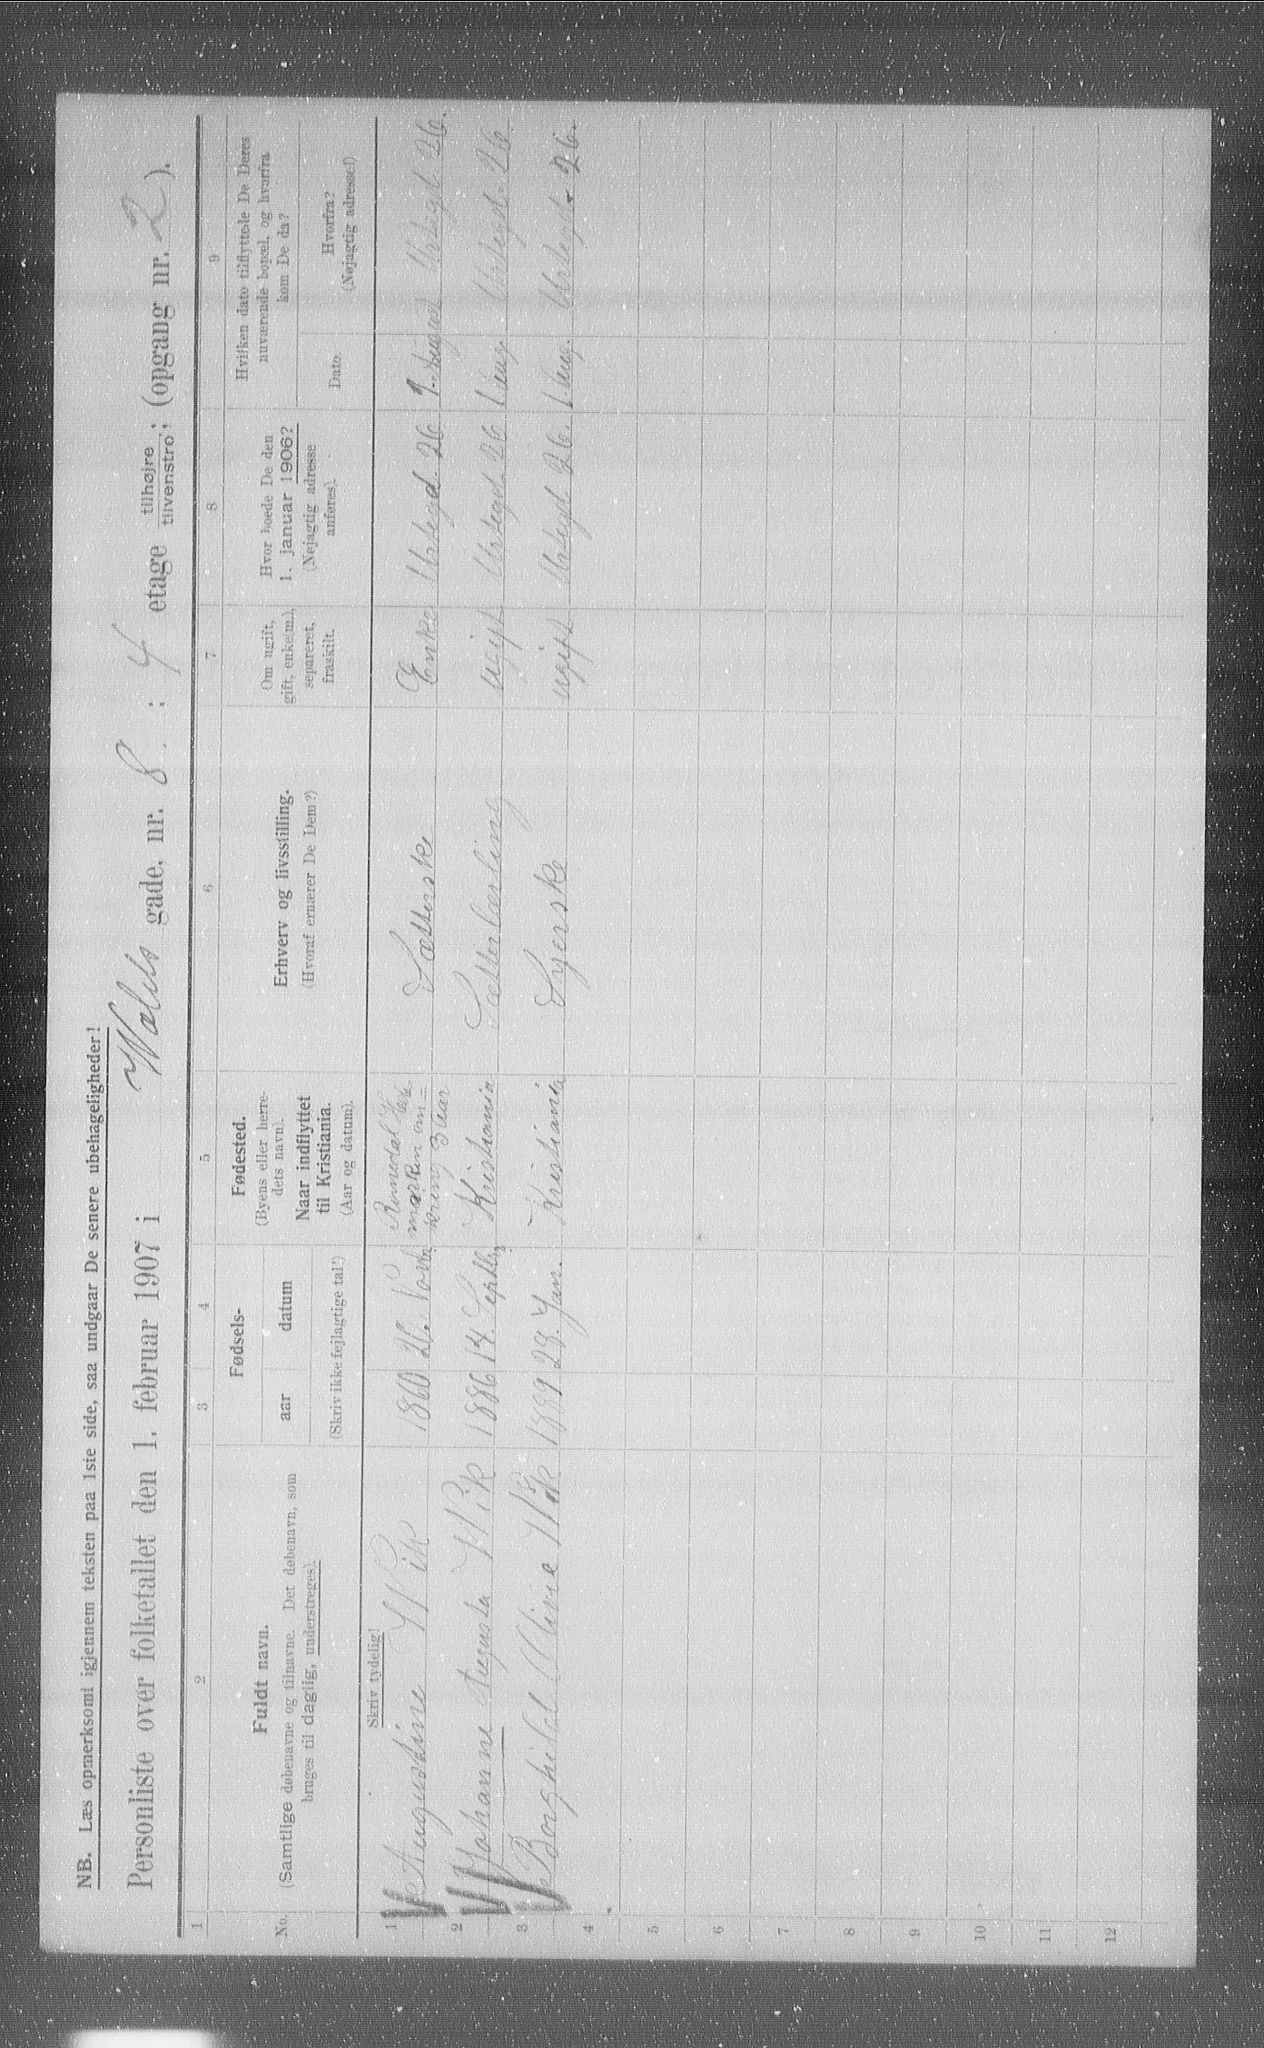 NB. Læs opmerksomt igjennem teksten paa 1ste side, saa undgaar De senere ubehageligheder!
Personliste over folketallet den 1. februar 1907 i Wælds gade, nr. 8. : 4 etage tilhøjre tilvenstro; (opgang nr. 2).
1 2 3 4 5 6 7 8 9
No.
Fuldt navn.
(Samtlige døbenavne og tilnavne. Det døbenavn, som
bruges til daglig, understreges).
Fødsels-
aar datum
(Skriv ikke fejlagtige tal!)
Fødested.
(Byens eller herre-
dets navn).
Naar indflyttet
til Kristiania.
(Aar og datum).
Erhverv og livsstilling.
(Hvoraf ernærer De Dem?)
Om ugift,
gift, enke(m.),
separeret,
fraskilt.
Hvor boede De den
1. januar 1906?
(Nøjagtig adresse
anføres).
Hvilken dato tilflyttede De Deres
nuværende bopæl, og hvorfra
kom De da?
Dato.
Hvorfra?
(Nøjagtig adresse!)
Skriv tydelig!
1 Augustine Wik 1860 26. Novb. Romedal Hede
marken om=
kring 3 Aar Sætterske Enke Urtegd. 26 1. August Urtegd. 26.
2 Johanne Augusta Wik 1886 14. Septbr Kristiania Sætterlærling ugift Urtegd. 26 1 Aug. Urtegd. 26.
3 Borghild Alima Wik 1889 28. Jan. Kristiania Syerske ugift Urtegd. 26. 1 Aug. Urtegd. 26.
4
5
6
7
8
9
10
11
12